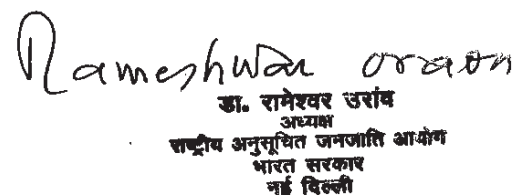 Rameshwar oraon
डा. रामेश्वर उरांव
अध्यक्ष
राष्ट्रीय अनुसूचित जनजाति आयोग
भारत सरकार
नई दिल्ली